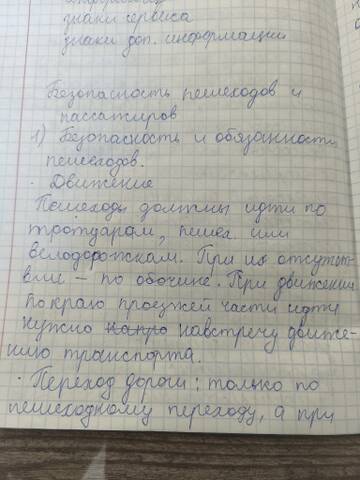 знаки сервиса
знаки доп. информации
Безопасность пешеходов и
пассажиров
1) Безопасность и обязанности
пешеходов.
· Движение
Пешеходы должны идти по
тротуарам, пешех или
велодорожкам. При их отсутст-
вии – по обочине. При движении
по краю проезжей части идти
нужно напро навстречу движе-
нию транспорта.
· Переход дороги: только по
пешеходному переходу, а при